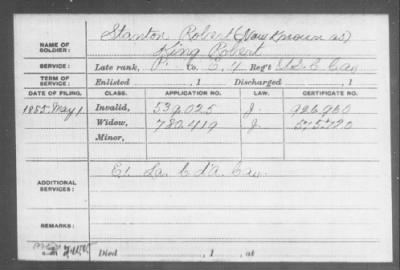 Stanton Robert (Now Known as)
NAME OF SOLDIER: King Robert
SERVICE: Late rank, P. Co. E, 4 Reg't U.S. C Cav
TERM OF SERVICE: Enlisted , 1 Discharged , 1
DATE OF FILING. CLASS. APPLICATION NO. LAW. CERTIFICATE NO.
1885 May 1. Invalid, 539025 J. 926960
Widow, 780419 J.
Minor,
ADDITIONAL SERVICES: La. C d'A. Cav.
REMARKS:
Died , 1 , at